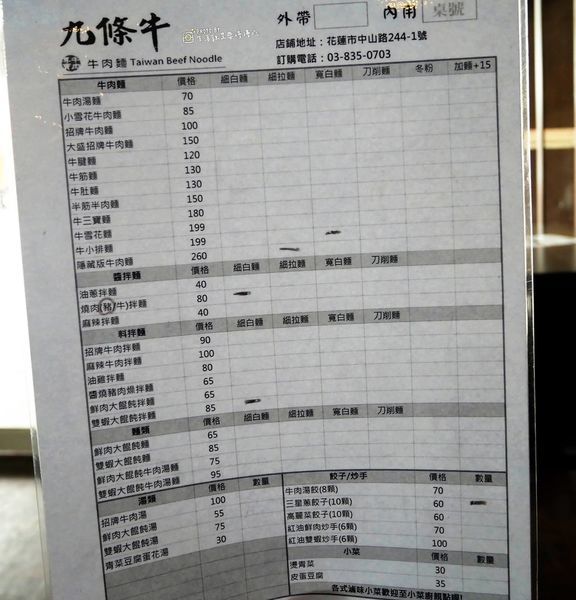 九條牛
外帶
內用 桌號
店鋪地址：花蓮市中山路244-1號
牛肉麵 Taiwan Beef Noodle
訂購電話：03-835-0703
牛肉麵 價格 細白麵 細拉麵 寬白麵 刀削麵 冬粉 加麵+15
牛肉湯麵 70
小雪花牛肉麵 85
招牌牛肉麵 100
大盛招牌牛肉麵 150
牛腱麵 120
牛筋麵 130
牛肚麵 130
半筋半肉麵 150
牛三寶麵 180
牛雪花麵 199
牛小排麵 199
隱藏版牛肉麵 260
醬拌麵 價格 細白麵 細拉麵 寬白麵 刀削麵
油蔥拌麵 40
燒肉(豬/牛)拌麵 80
麻辣拌麵 40
料拌麵 價格 細白麵 細拉麵 寬白麵 刀削麵
招牌牛肉拌麵 90
麻辣牛肉拌麵 100
油雞拌麵 80
醬燒豬肉燥拌麵 65
鮮肉大餛飩拌麵 65
雙蝦大餛飩拌麵 85
麵類 價格 細白麵 細拉麵 寬白麵 刀削麵
鮮肉大餛飩麵 65
雙蝦大餛飩麵 85
鮮肉大餛飩牛肉湯麵 75
雙蝦大餛飩牛肉湯麵 95
湯類 價格 數量
招牌牛肉湯 100
鮮肉大餛飩湯 55
雙蝦大餛飩湯 75
青菜豆腐蛋花湯 30
餃子/炒手 價格 數量
牛肉湯餃(8顆) 70
三星蔥餃子(10顆) 60
高麗菜餃子(10顆) 60
紅油鮮肉炒手(6顆) 70
紅油雙蝦炒手(6顆) 100
小菜 價格 數量
燙青菜 30
皮蛋豆腐 35
各式滷味小菜歡迎至小菜廚前點購!